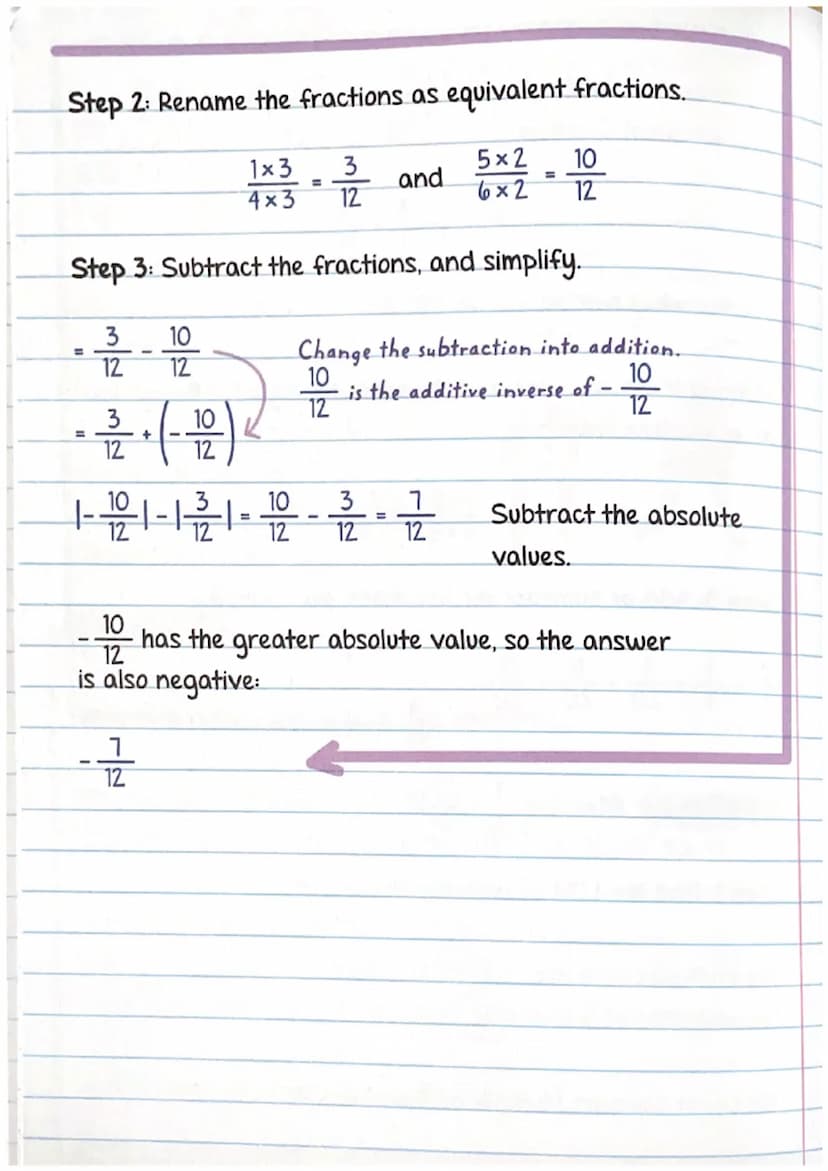 Step 2: Rename the fractions as equivalent fractions.
1×3/4×3 = 3/12 and 5×2/6×2 = 10/12
Step 3: Subtract the fractions, and simplify.
= 3/12 - 10/12
Change the subtraction into addition.
10/12 is the additive inverse of - 10/12
= 3/12 + (- 10/12)
|- 10/12| - |3/12| = 10/12 - 3/12 = 7/12
Subtract the absolute
values.
- 10/12 has the greater absolute value, so the answer
is also negative:
- 7/12